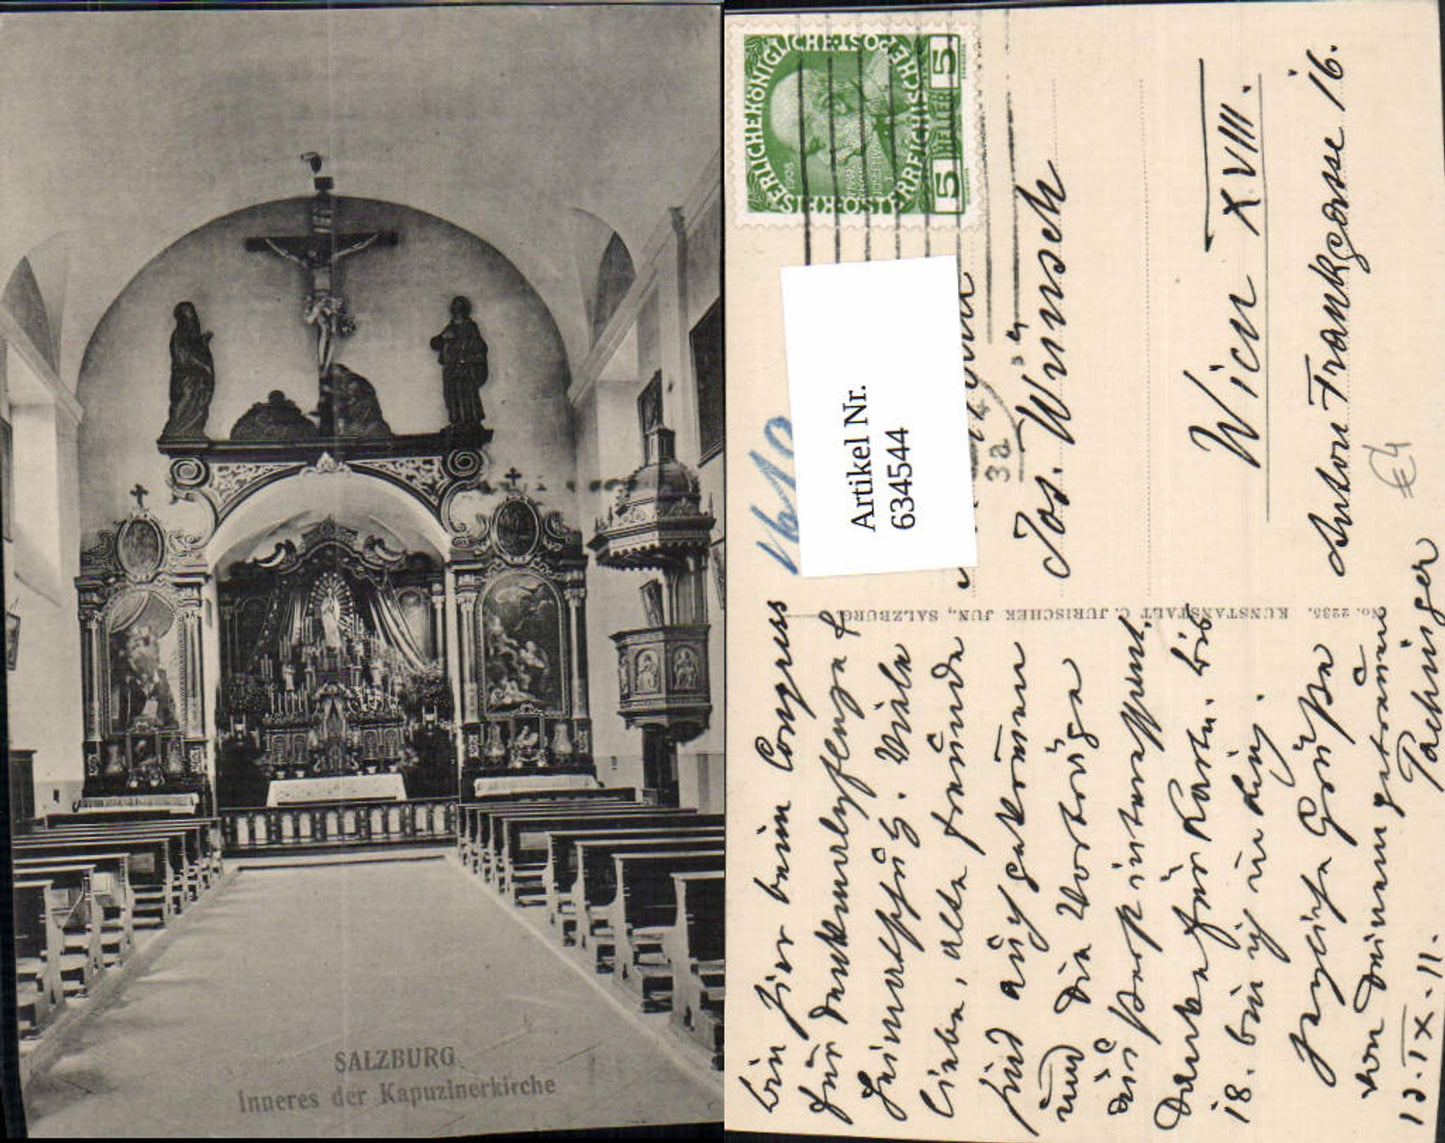 SALZBURG
Inneres der Kapuzinerkirche
KAISERLICHEKÖNIGLICHE ÖSTERREICHISCHE
5 HELLER 5
1908
Artikel Nr.
634544
Jos. Wünsch
Wien XVIII.
Anton Frankgasse 16.
No. 2235. KUNSTANSTALT C. JURISCHEK JUN., SALZBURG.
bin hier beim Congress
für Denkmalpflege &
Heimatschutz. Viele
liebe, alte Freunde
sind auch gekommen
und die Vorträge
äußerst interessant.
Danke für Karte. bis
18. bin ich in
Herzliche Grüße
von Deinem getreuen
Pachinger
12.IX.11.